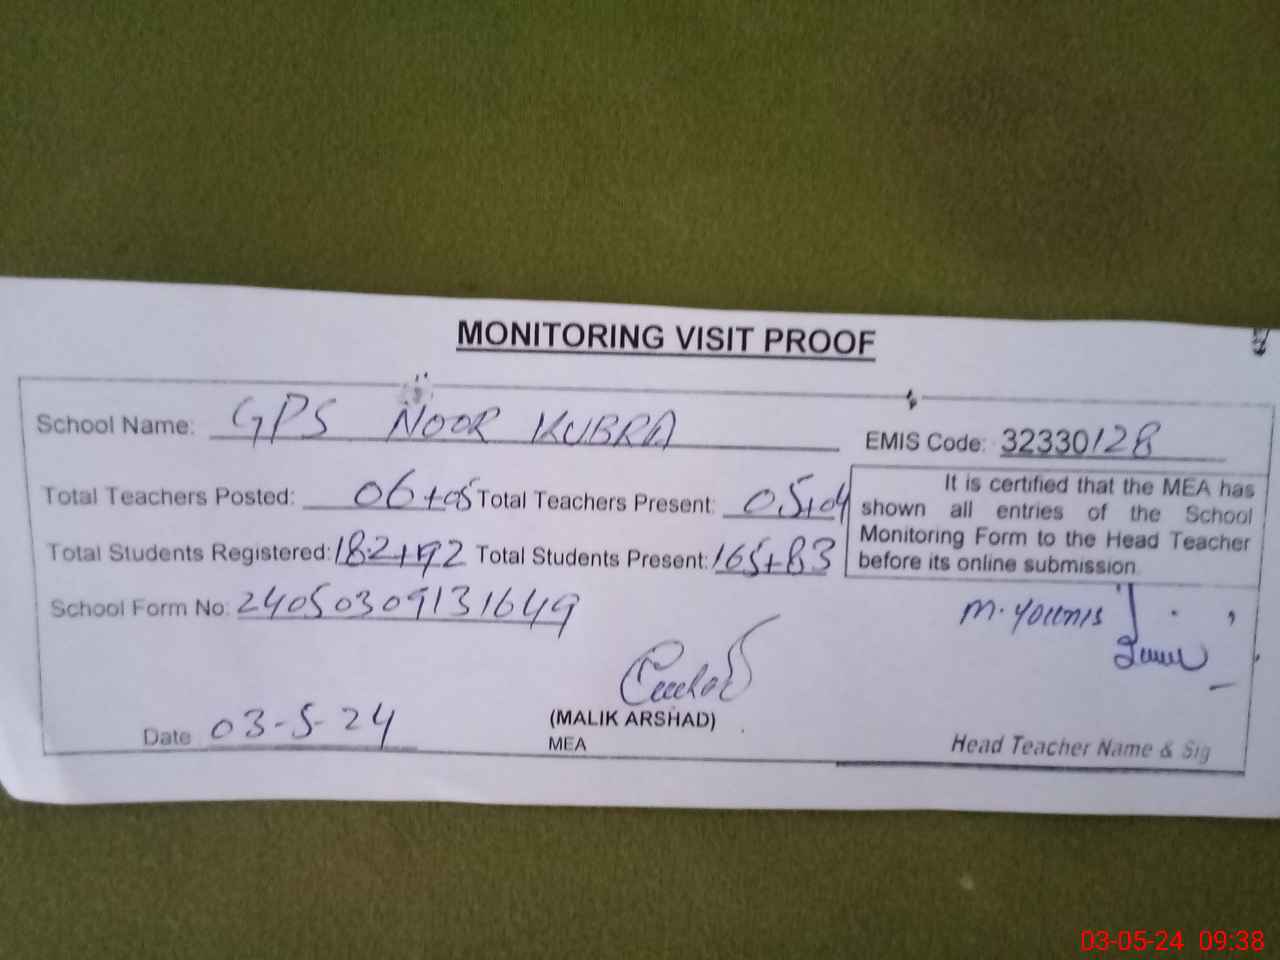 MONITORING VISIT PROOF
School Name: GPS NOOR KUBRA
EMIS Code: 32330128
Total Teachers Posted: 06+05 Total Teachers Present: 05+04
Total Students Registered: 182+92 Total Students Present: 165+83
It is certified that the MEA has
shown all entries of the School
Monitoring Form to the Head Teacher
before its online submission.
School Form No: 24050309131649
M. YOUNIS
(MALIK ARSHAD)
MEA
Date 03-5-24
Head Teacher Name & Sig
03-05-24 09:38